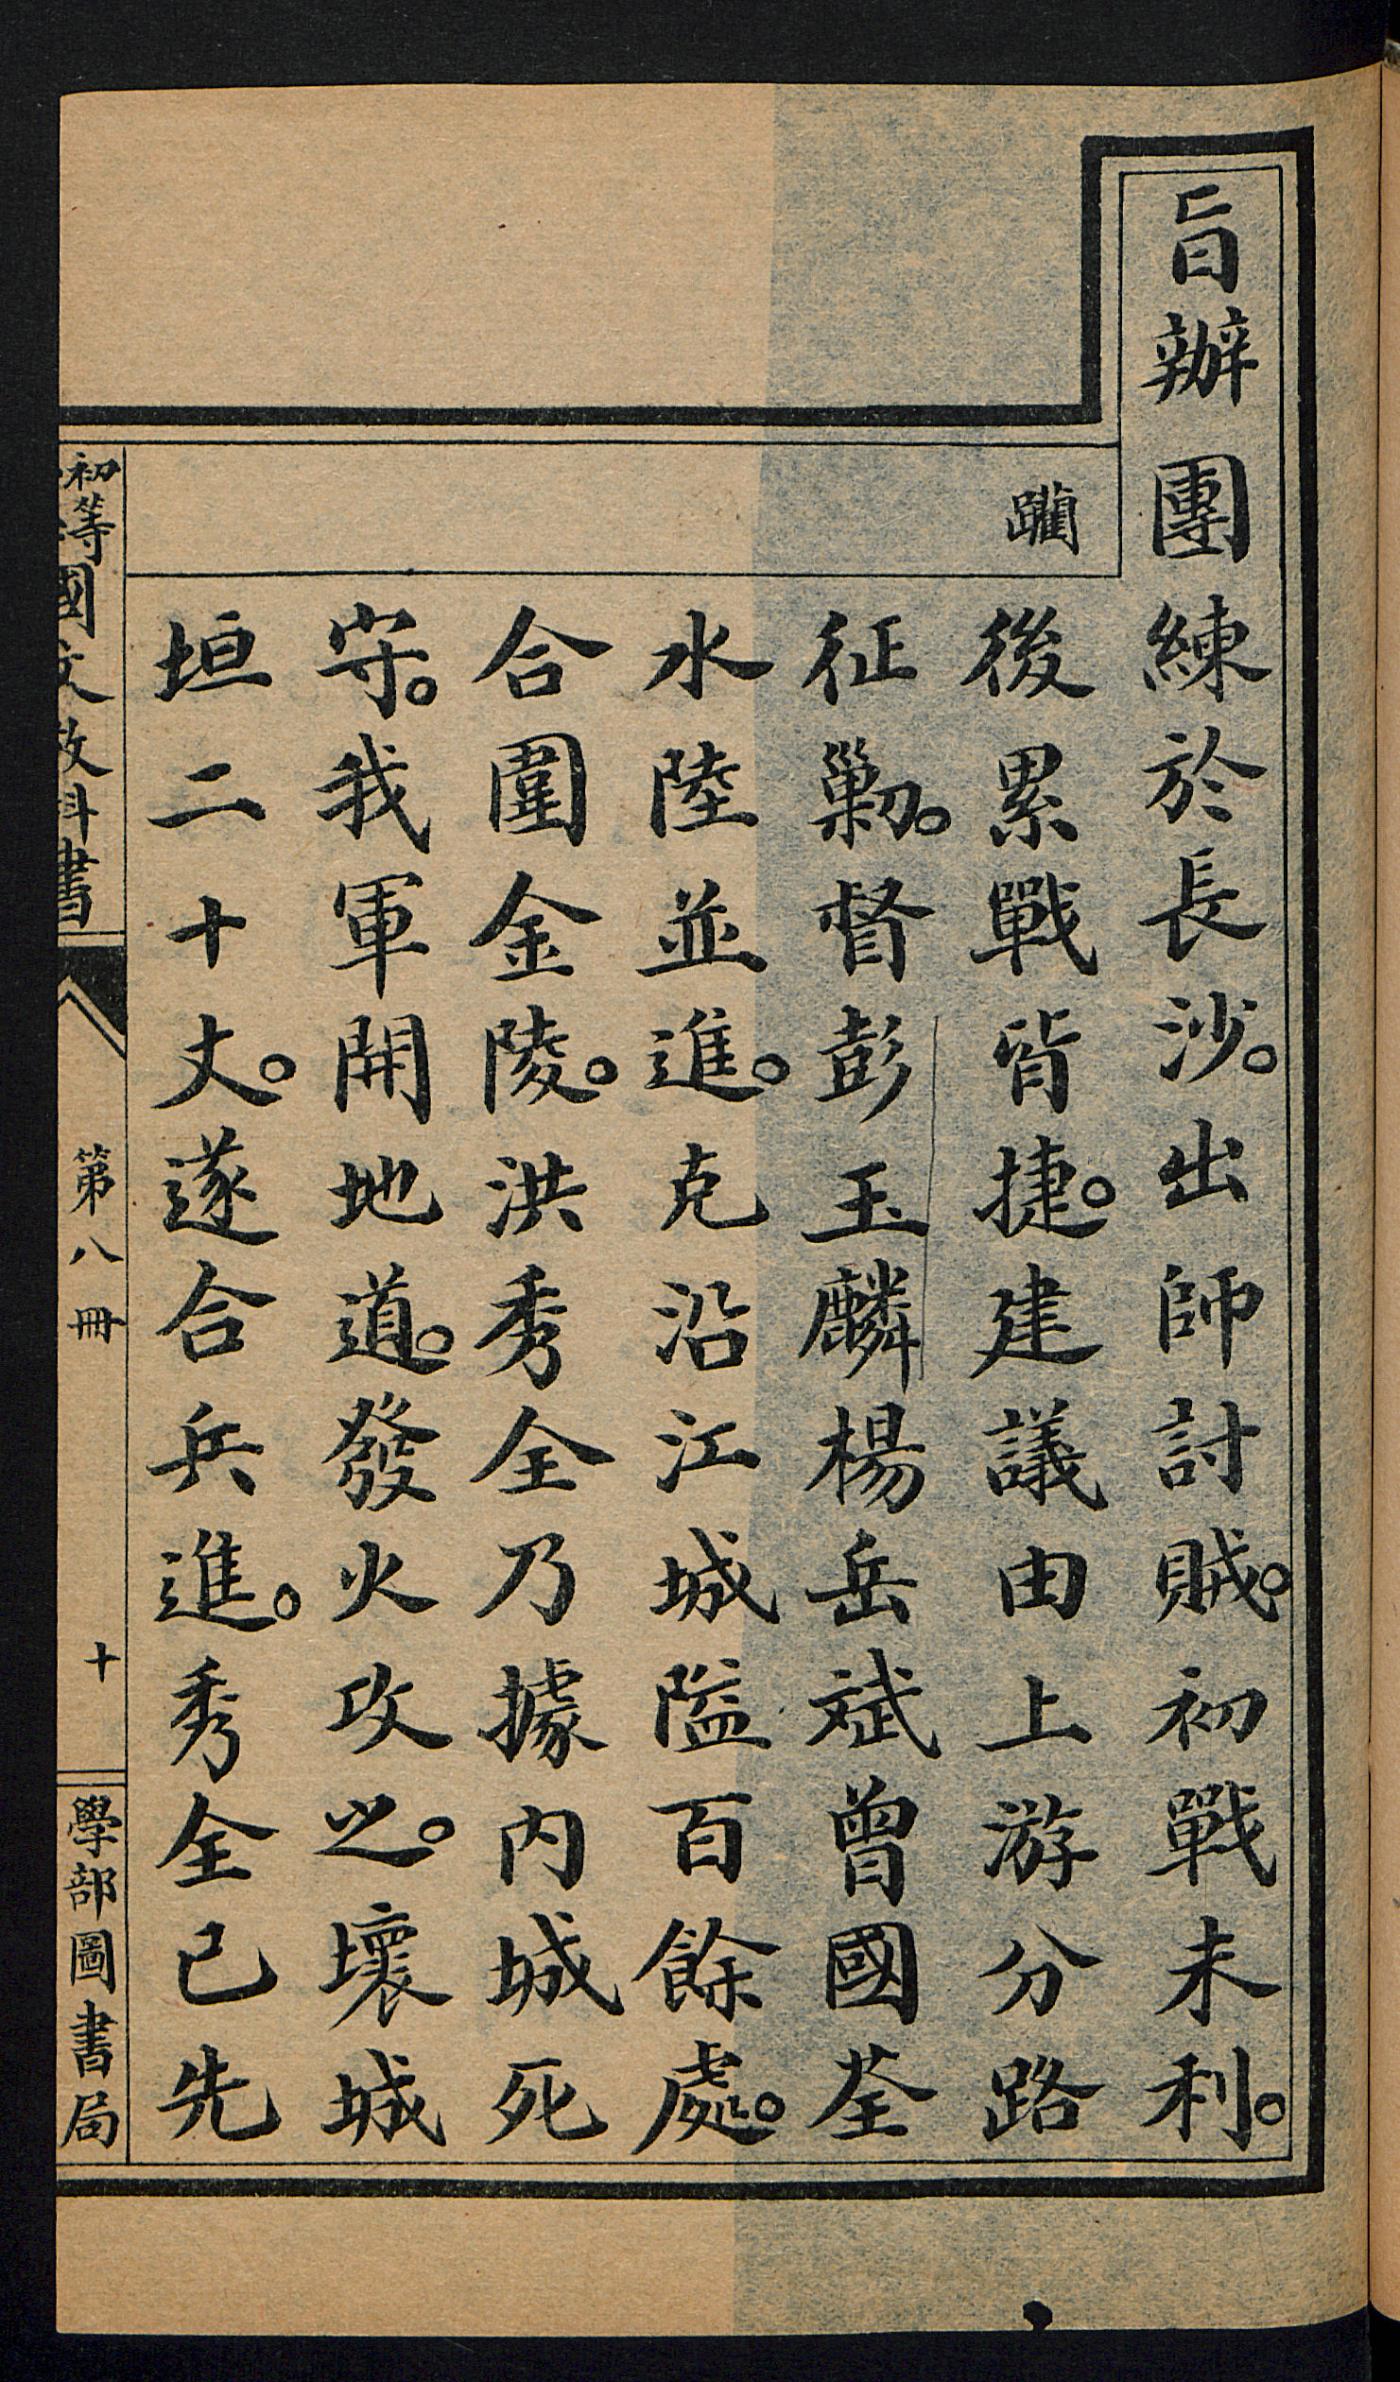 旨辦團練於長沙。出師討賊。初戰未利。
躪
後累戰皆捷。建議由上游分路
征剿。督彭玉麟楊岳斌曾國荃
水陸並進。克沿江城隘百餘處。
合圍金陵。洪秀全乃據內城死
守。我軍開地道。發火攻之。壞城
垣二十丈。遂合兵進。秀全已先
初等國文教科書
第八冊
十
學部圖書局